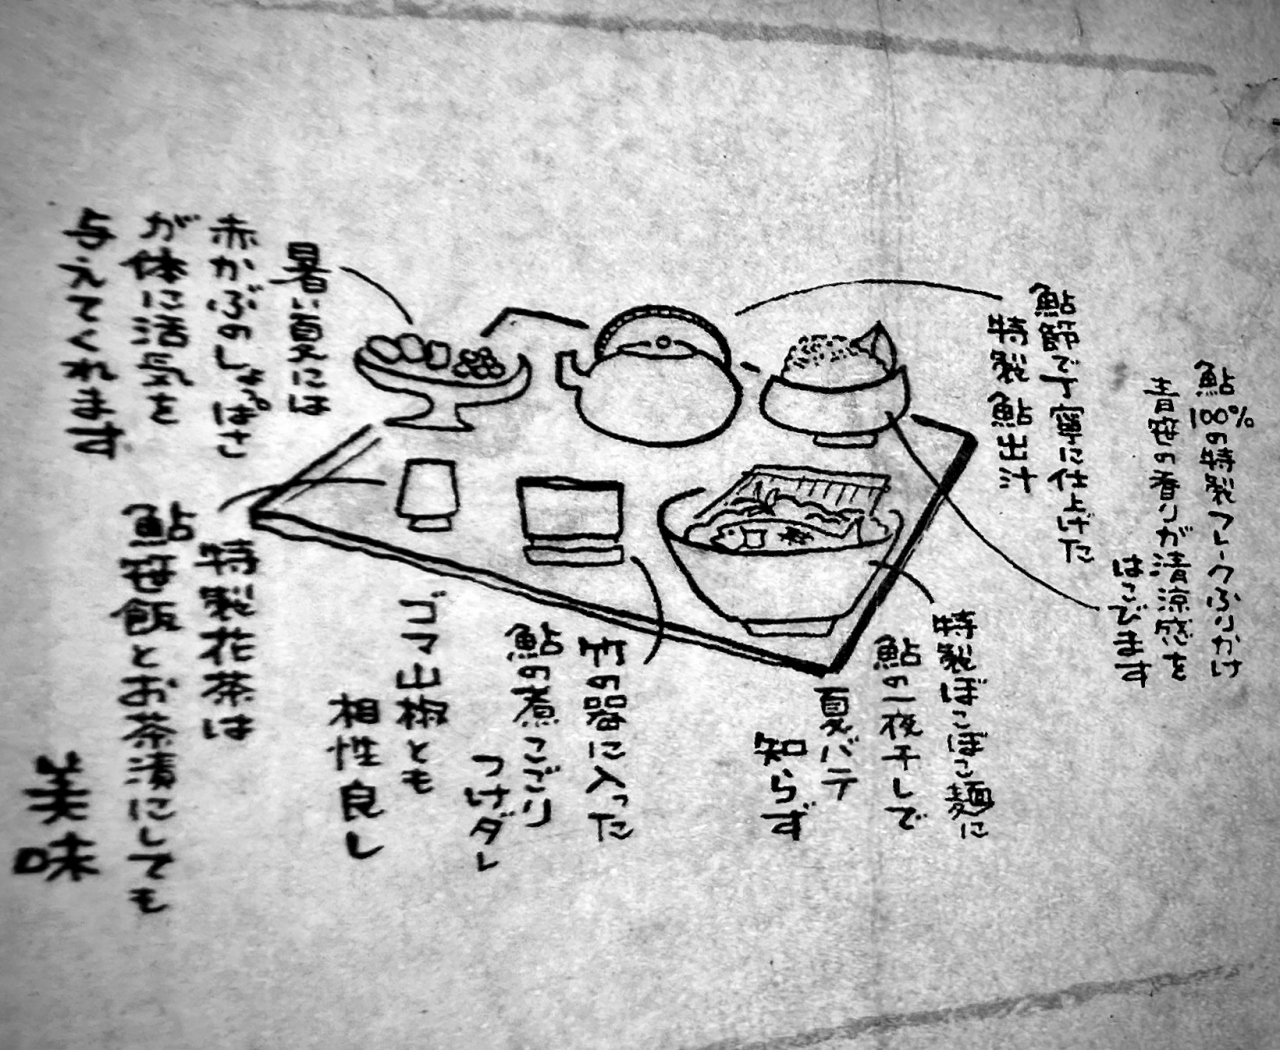 鮎
100%の特製フレークふりかけ
青笹の香りが清涼感を
はこびます
鮎節で丁寧に仕上げた
特製 鮎出汁
特製ぼこぼこ麺に
鮎の一夜干しで
夏バテ
知らず
竹の器に入った
鮎の煮こごり
つけダレ
ゴマ山椒とも
相性良し
暑い夏には
赤かぶのしょっぱさ
が体に活気を
与えてくれます
特製花茶は
鮎笹飯とお茶漬にしても
美味